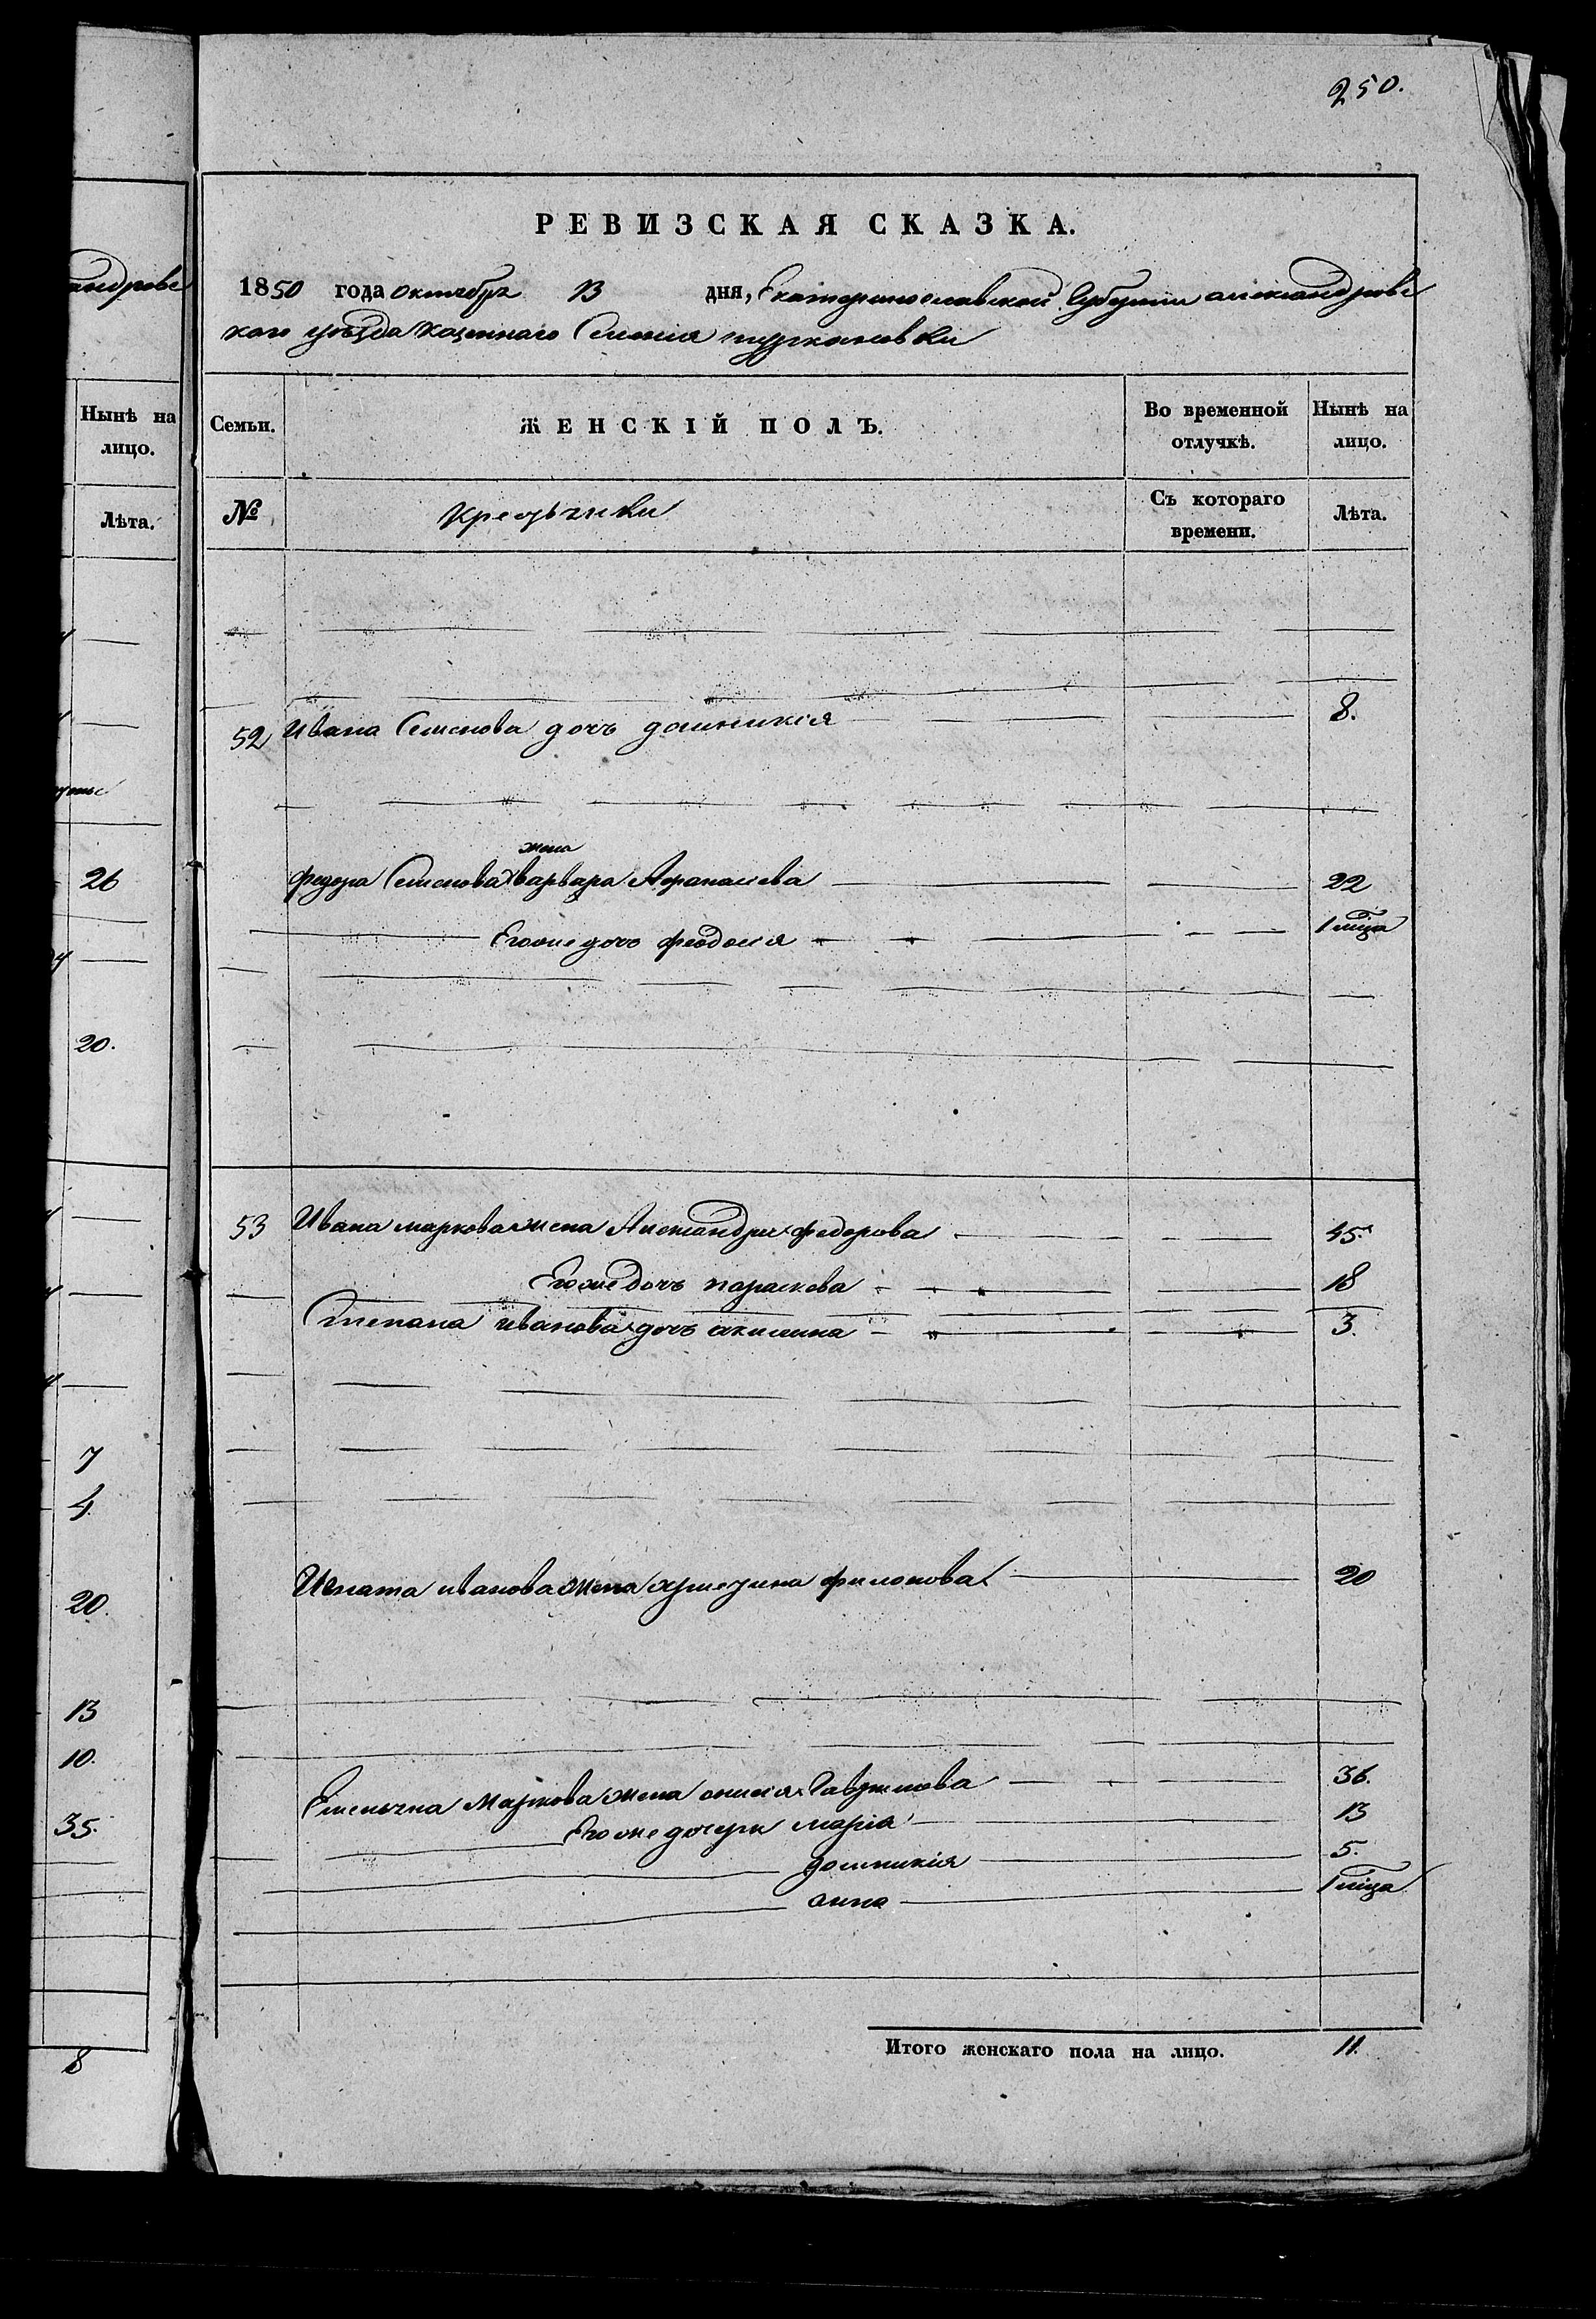 андровс
Нынѣ на
лицо.
Лѣта.
26
20.
7
4.
20.
13
10.
35.
8
250.
РЕВИЗСКАЯ СКАЗКА.
1850 года октебря 13 дня, Екатеринославской Губернии александровс
кого уѣзда казеннаго Селения
Семьи. ЖЕНСКІЙ ПОЛЪ. Во временной отлучкѣ. Нынѣ на лицо.
№ Съ котораго времени. Лѣта.
52 Ивана Семенова дочь домникія 8.
жена
федора Семенова варвара Афанасиева 22
Егоже дочь феодосия 1 мца
53 Ивана маркова жена Александра федорова 45.
Егоже дочь параскева 18
Степана иванова дочь акилина 3.
Игната иванова жена филонова 20
Емельяна Маркова жена Гаврилова 36.
Егоже дочери марія 13
домникія 5.
анна 1 мца
Итого женскаго пола на лицо. 11.